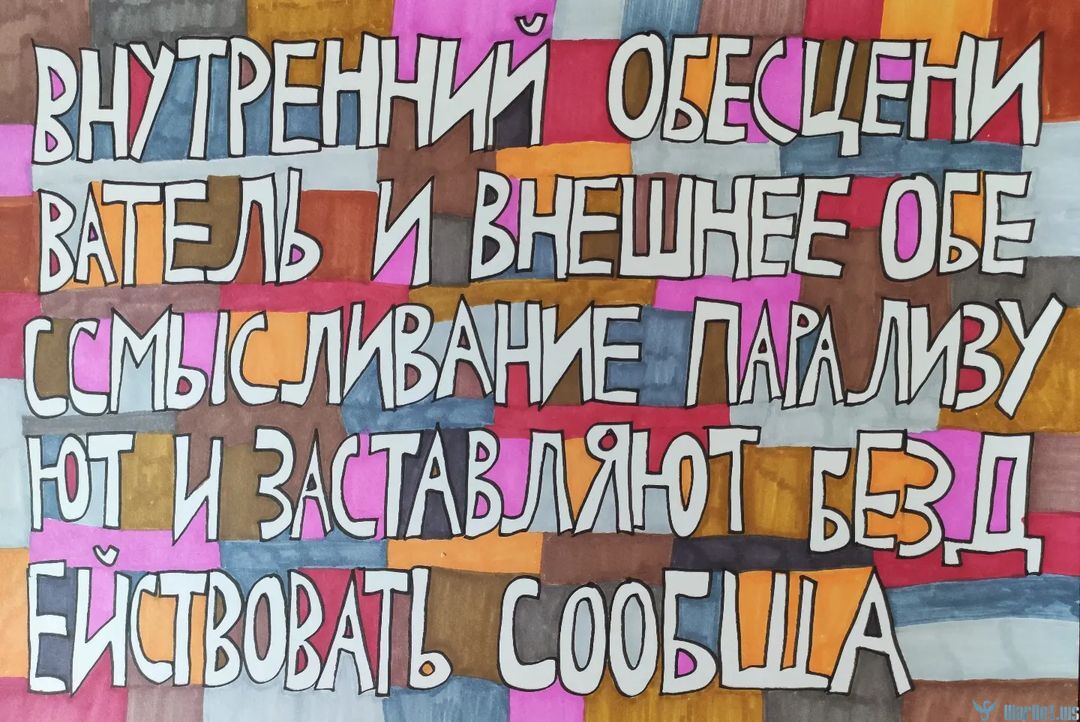 ВНУТРЕННИЙ ОБЕСЦЕНИ
ВАТЕЛЬ И ВНЕШНЕЕ ОБЕ
ССМЫСЛИВАНИЕ ПАРАЛИЗУ
ЮТ И ЗАСТАВЛЯЮТ БЕЗД
ЕЙСТВОВАТЬ СООБША
WarNet.ws